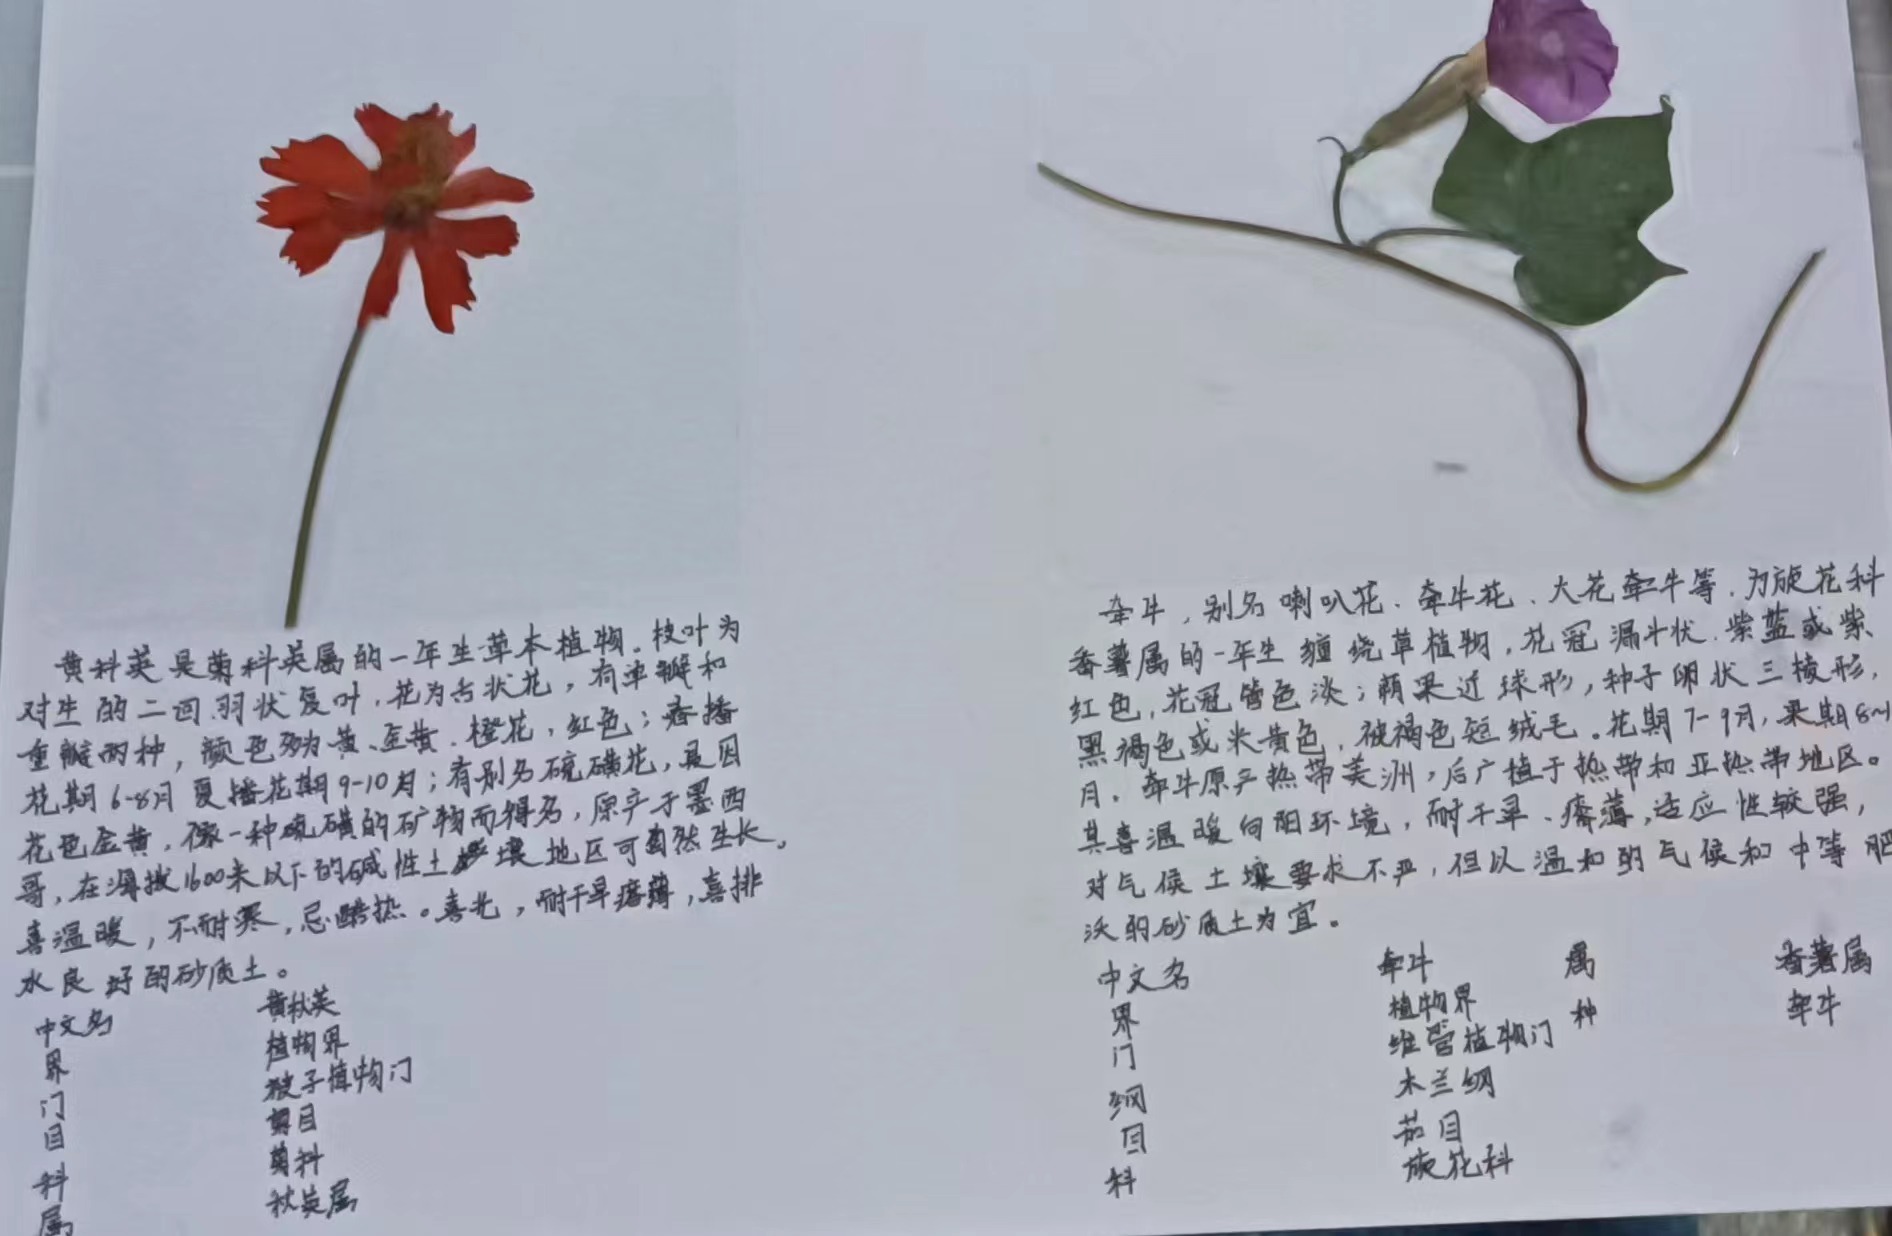 黄科英是菊科英属的一年生草本植物。枝叶为
对生的二回羽状复叶，花为舌状花，有单瓣和
重瓣两种，颜色多为黄、金黄、橙花，红色；春播
花期6-8月夏播花期9-10月；有别名硫磺花，是因
花色金黄，像一种硫磺的矿物而得名，原产于墨西
哥，在海拔1600米以下的碱性土壤地区可自然生长。
喜温暖，不耐寒，忌酷热。喜光，耐干旱瘠薄，喜排
水良好的砂质土。
中文名 黄秋英
界 植物界
门 被子植物门
目 菊目
科 菊科
属 秋英属
牵牛，别名喇叭花、牵牛花、大花牵牛等，为旋花科
番薯属的一年生缠绕草植物，花冠漏斗状，紫蓝或紫
红色，花冠管色淡；蒴果近球形，种子卵状三棱形，
黑褐色或米黄色，被褐色短绒毛。花期7-9月，果期8~1
月。牵牛原产热带美洲，后广植于热带和亚热带地区。
其喜温暖向阳环境，耐干旱、瘠薄，适应性较强，
对气候土壤要求不严，但以温和的气候和中等肥
沃的砂质土为宜。
中文名 牵牛 属 番薯属
界 植物界 种 牵牛
门 维管植物门
纲 木兰纲
目 茄目
科 旋花科